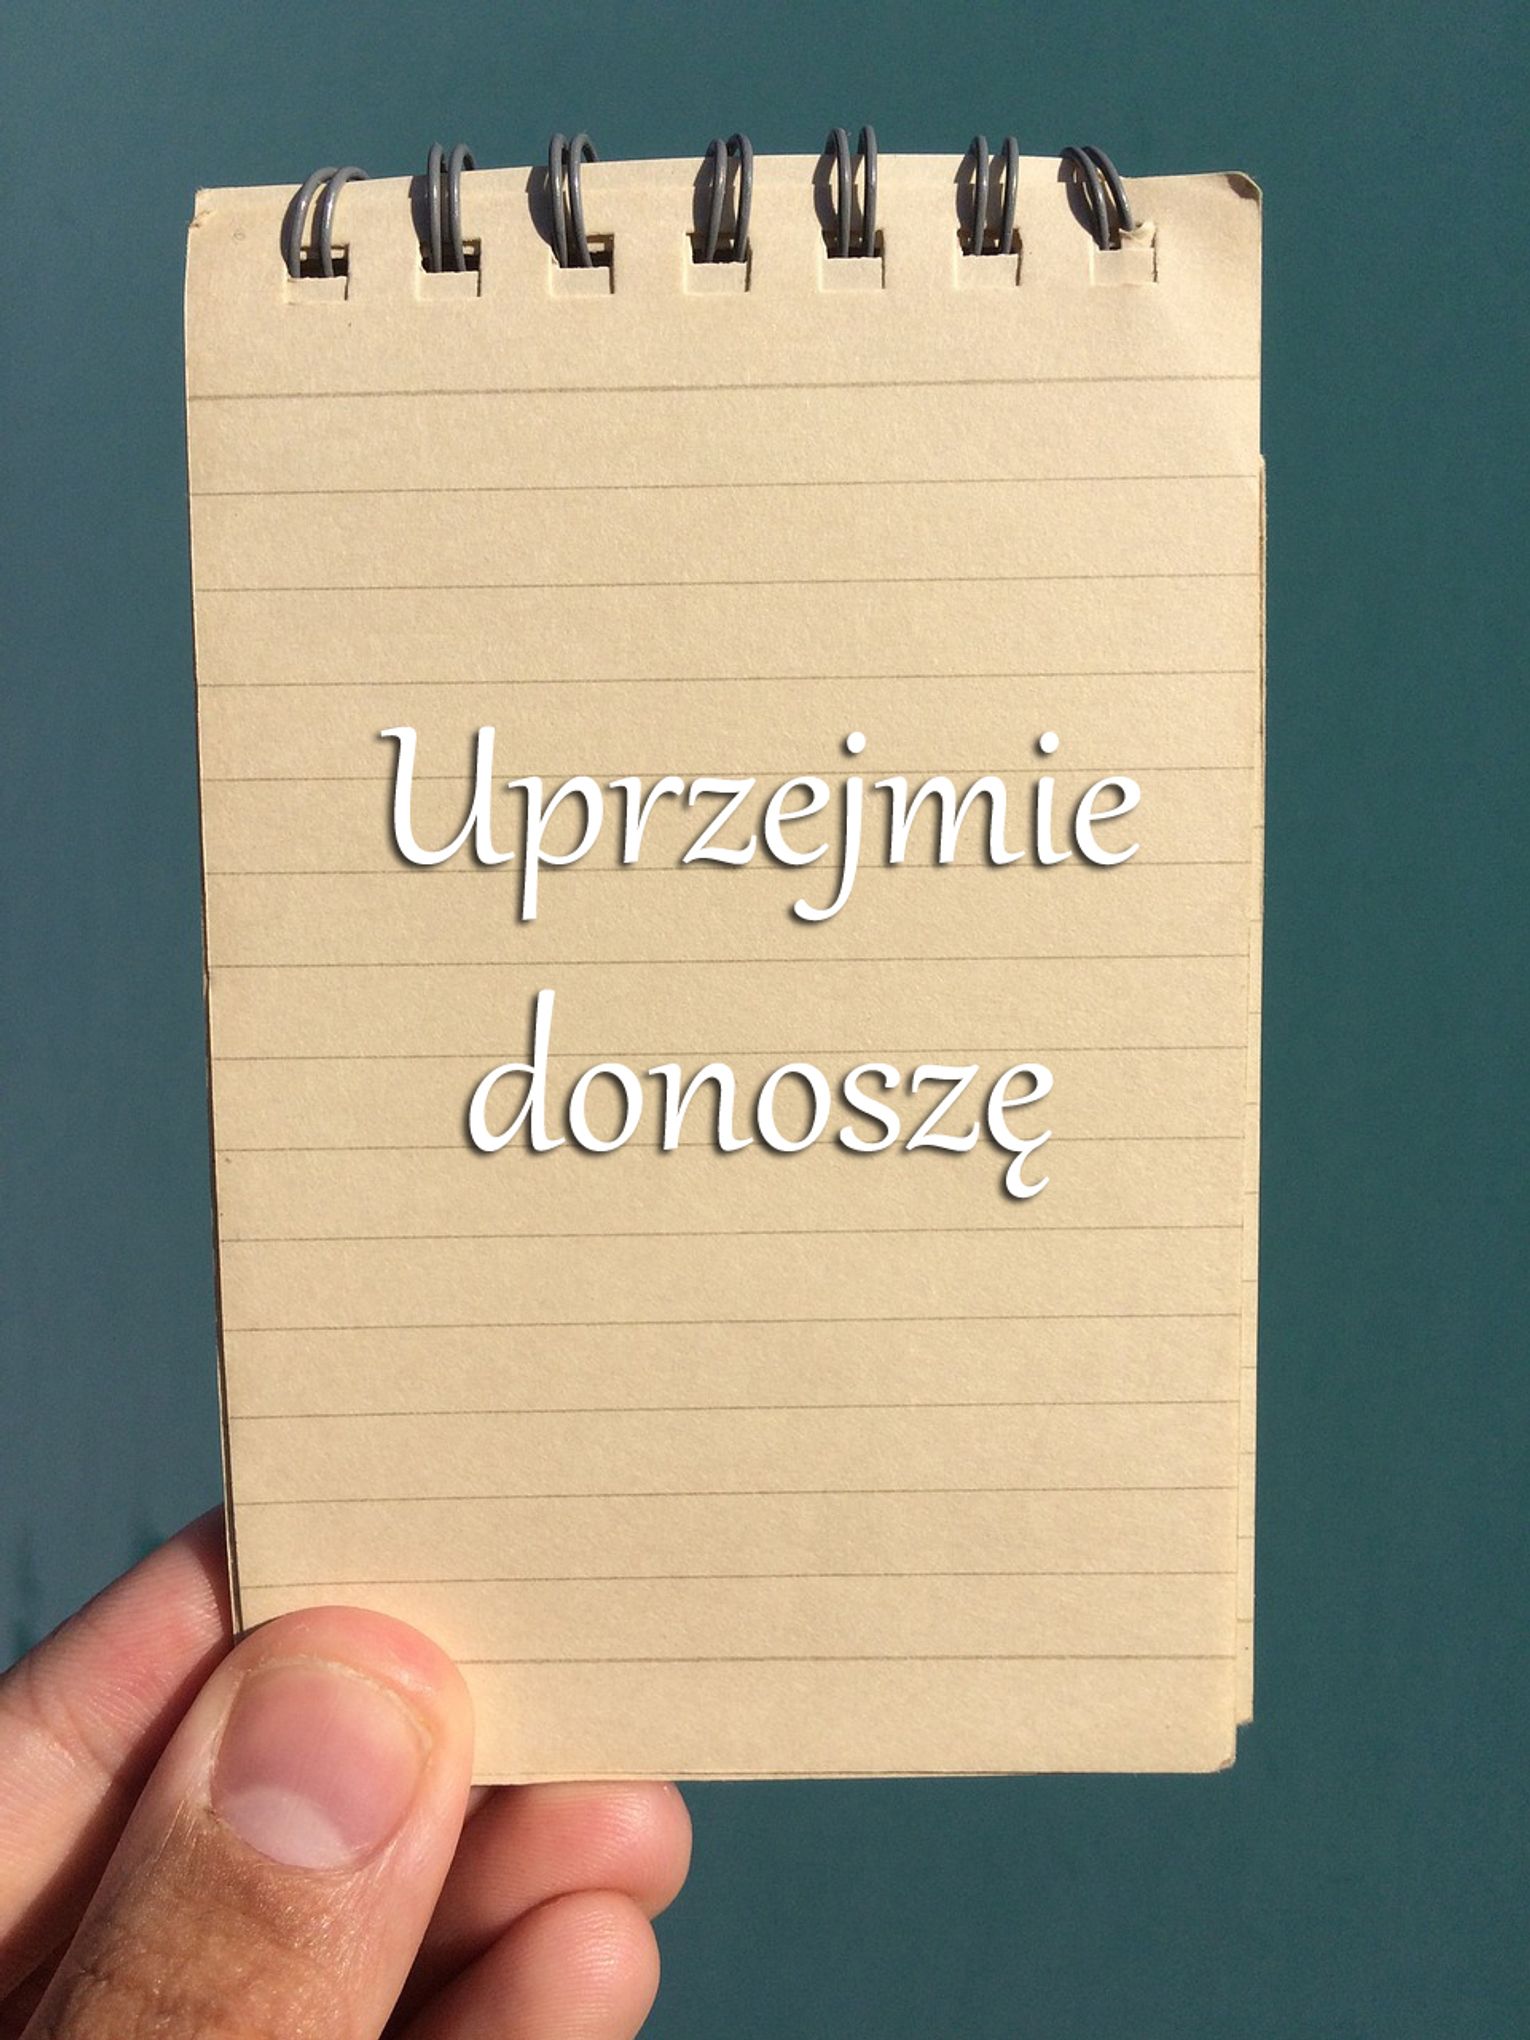 Uprzejmie
donoszę